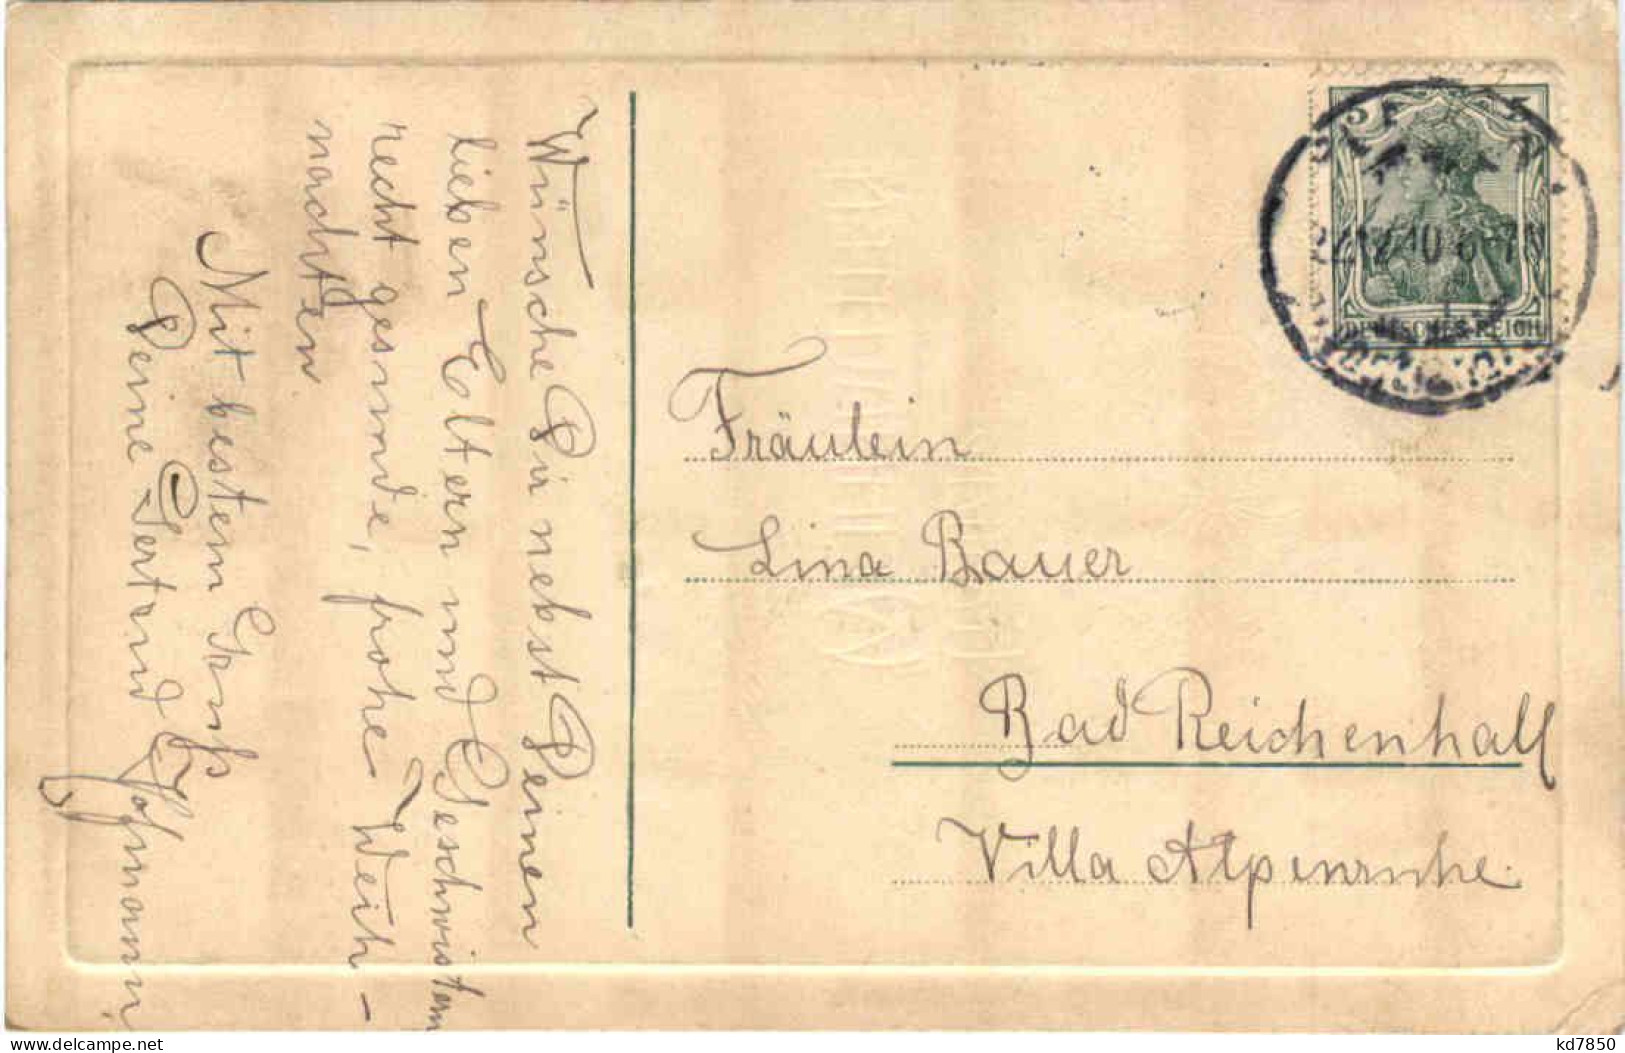 Wünsche Dir nebst Deinen
lieben Eltern und Geschwistern
recht gesunde, frohe Weih-
nachten
Mit bestem Gruß
Deine Hofmann
Fräulein
Lina Bauer
Bad Reichenhall
Villa Alpenruhe.
DEUTSCHES REICH
delcampe.net
kd7850